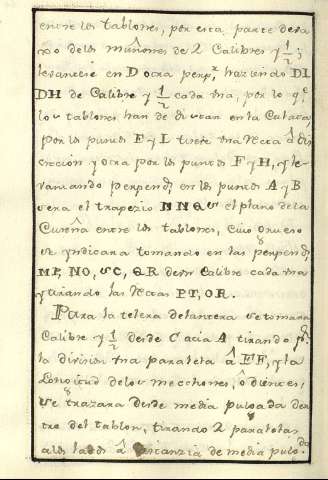 entre los tablones, por esta parte deba
xo delos muñones de 2 Calibres y 1/2;
levantese en D otra perp.r haziendo DI
DH de Calibre y 1/2 cada una, por lo q.e
los tablones han de distar en la Culata
por los puntos E y I tirese una Recta â dis
crecion y otra por los puntos F y H, y le
vantando perpend.s en los puntos A y B
sera el trapezio NNQS el plano dela
Cureña entre los tablones, cuio grueso
se yndicara tomando en las perpend.s
MP, NO, SC, QR deun Calibre cada una
y tirando las Rectas PT, OR.
Para la telera delantera se tomara
Calibre y 1/2 desde C acia A tirando p.r
la division una paralela â EF, y la
Longitud delos mechones, ô dientes,
se trazara desde media pulgada den
tro del tablon, tirando 2 paralelas
alos lados â distanzia de media pulg.da